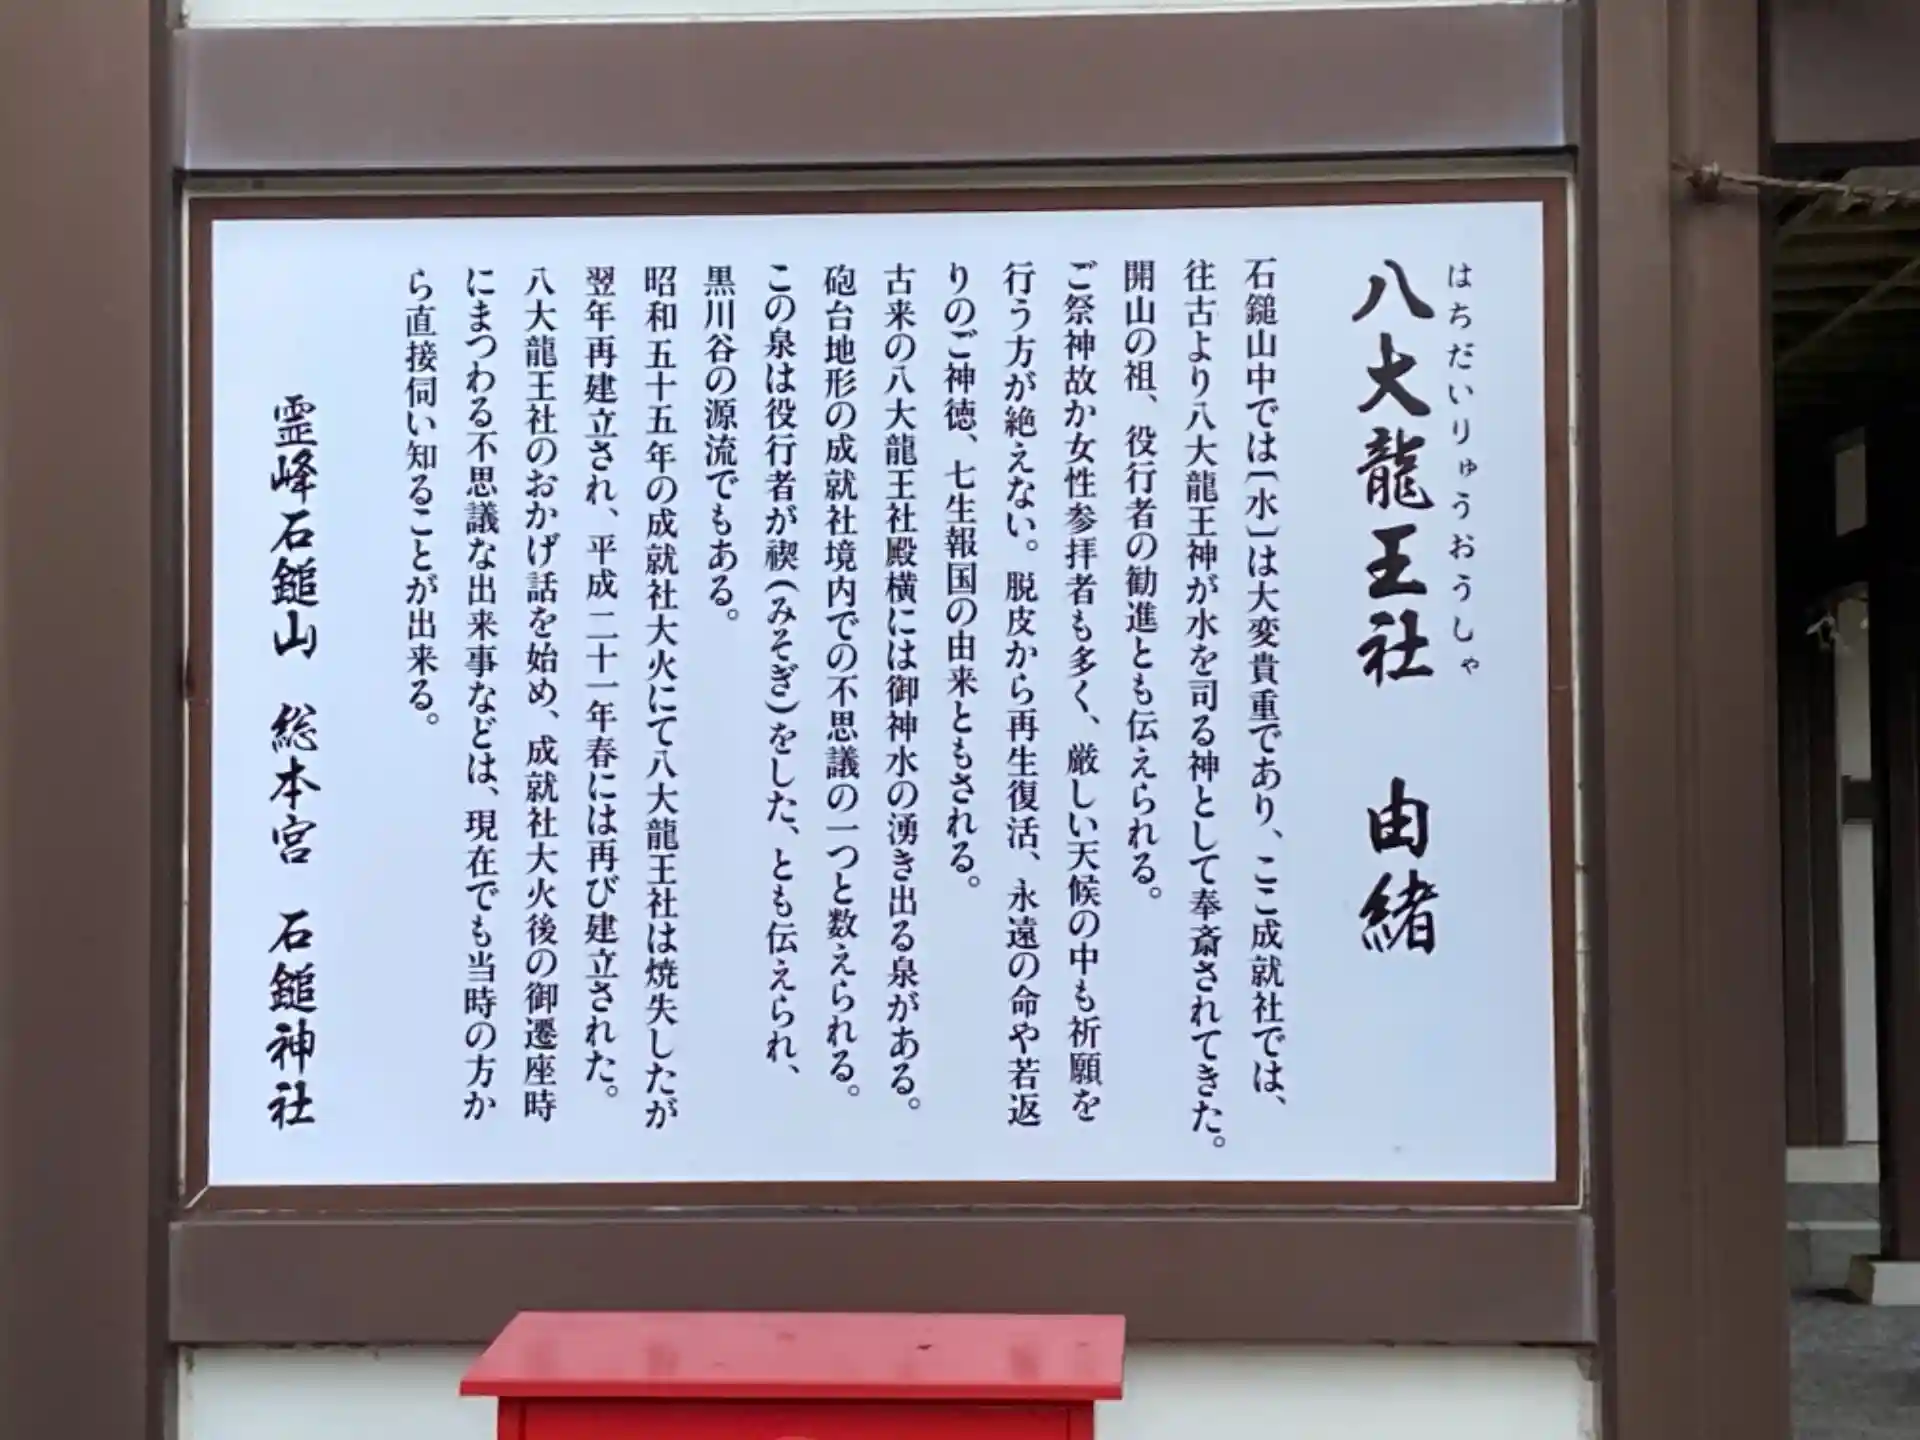 八大龍王社　由緒
はちだいりゅうおうしゃ
石鎚山中では〔水〕は大変貴重であり、ここ成就社では、
往古より八大龍王神が水を司る神として奉斎されてきた。
開山の祖、役行者の勧進とも伝えられる。
ご祭神故か女性参拝者も多く、厳しい天候の中も祈願を
行う方が絶えない。脱皮から再生復活、永遠の命や若返
りのご神徳、七生報国の由来ともされる。
古来の八大龍王社殿横には御神水の湧き出る泉がある。
砲台地形の成就社境内での不思議の一つと数えられる。
この泉は役行者が禊（みそぎ）をした、とも伝えられ、
黒川谷の源流でもある。
昭和五十五年の成就社大火にて八大龍王社は焼失したが
翌年再建立され、平成二十一年春には再び建立された。
八大龍王社のおかげ話を始め、成就社大火後の御遷座時
にまつわる不思議な出来事などは、現在でも当時の方か
ら直接伺い知ることが出来る。
霊峰石鎚山　総本宮　石鎚神社